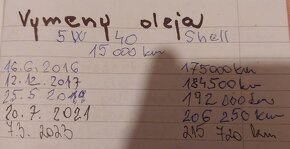 Vymeny oleja
5W 40 Shell
15 000 km
16.6.2016 175000km
12.12.2017 184500km
25.5.2019 192 000km
20.7.2021 206 250km
7.3.2023 215 720 km